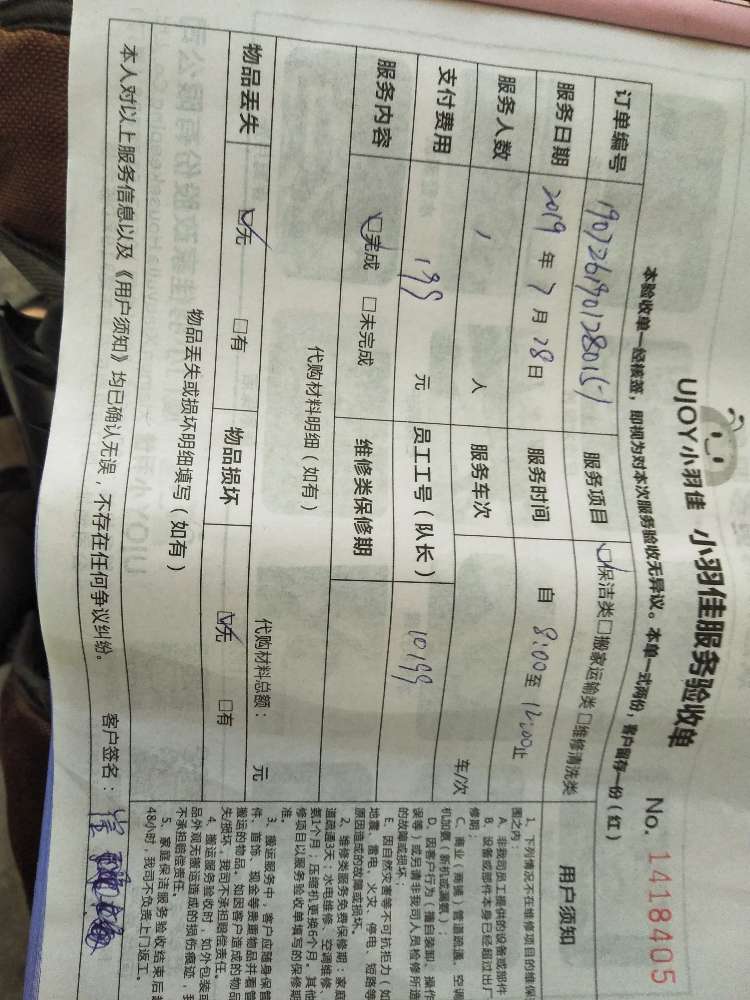 UJOY小羽佳 小羽佳服务验收单
No. 1418405
本验收单一经核签，即视为对本次服务验收无异议。本单一式两份，客户留存一份（红）
订单编号 19072619012800151 服务项目 ☑保洁类□搬家运输类□维修清洗类
服务日期 2019 年 7 月 28 日 服务时间 自 8:00 至 12:00 止
服务人数 1 人 服务车次 车/次
支付费用 199 元 员工工号（队长） 10199
服务内容 ☑完成 □未完成 维修类保修期
代购材料明细（如有）
代购材料总额： 元
物品丢失 ☑无 □有 物品损坏 ☑无 □有
物品丢失或损坏明细填写（如有）
本人对以上服务信息以及《用户须知》均已确认无误，不存在任何争议纠纷。 客户签名：
用户须知
1、下列情况不在维修项目的维保
围之内：
A、非我司员工提供的设备或部件
B、设备或部件本身已经超过出厂
修期；
C、商业（商铺）管道疏通、空调
机加氨（新机或漏氨）；
D、因客户行为（擅自装卸、操作
误等）或另请非我司人员检修所造
的故障或损坏；
E、因自然灾害等不可抗拒力（如
地震、雷电、火灾、停电、短路等
原因造成的故障或损坏。
2、维修类服务免费保修期：家庭
道疏通3天；水电维修、空调维修、
氨1个月；压缩机更换6个月。其他
修项目以服务验收单填写的保修期
准。
3、搬运服务中，客户应随身保管
件、首饰、现金等贵重物品并看管
搬运的物品，如因客户造成的物品
失/损坏，我司不承担赔偿责任。
4、搬运服务验收时，如外包装或
品外观无搬运造成的损伤痕迹，我
不承担赔偿责任。
5、家庭保洁服务验收结束后
48小时，我司不负责上门返工。